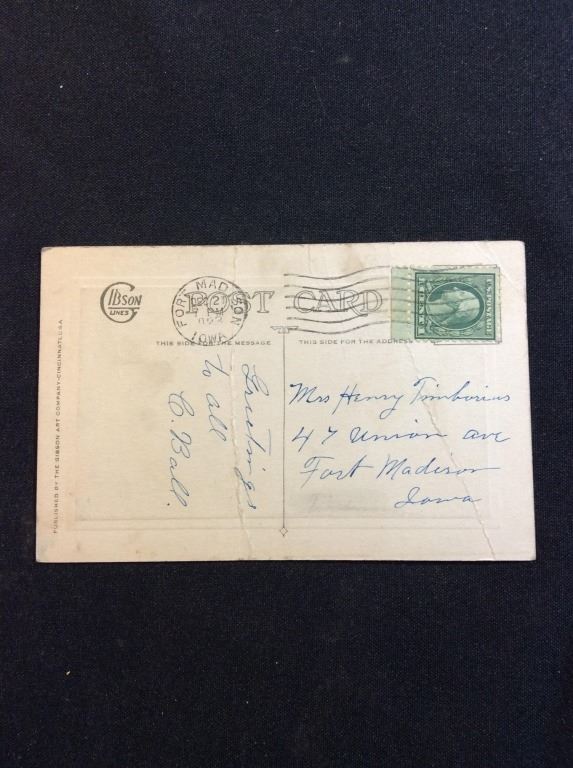 GIBSON
LINES
POST CARD
FORT MADISON
PM
IOWA
THIS SIDE FOR THE MESSAGE
THIS SIDE FOR THE ADDRESS
Greetings
to all
C. Ball.
Mrs Henry Timborius
47 Union ave
Fort Madison
Iowa
PUBLISHED BY THE GIBSON ART COMPANY-CINCINNATI,U.S.A.